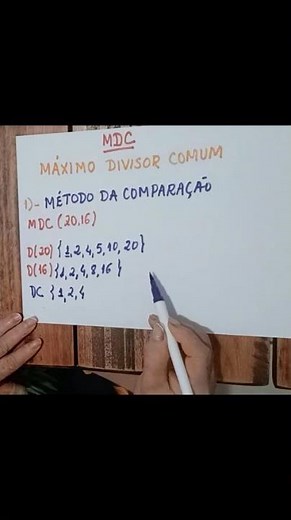 MDC
MÁXIMO DIVISOR COMUM
1)- MÉTODO DA COMPARAÇÃO
MDC (20,16)
D(20) {1,2,4,5,10,20}
D(16) {1,2,4,8,16}
DC {1,2,4